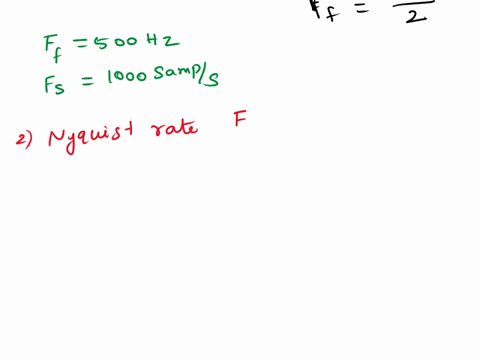 F_f = ―/2
F_f = 500 Hz
F_s = 1000 Samp/s
2) Nyquist rate F